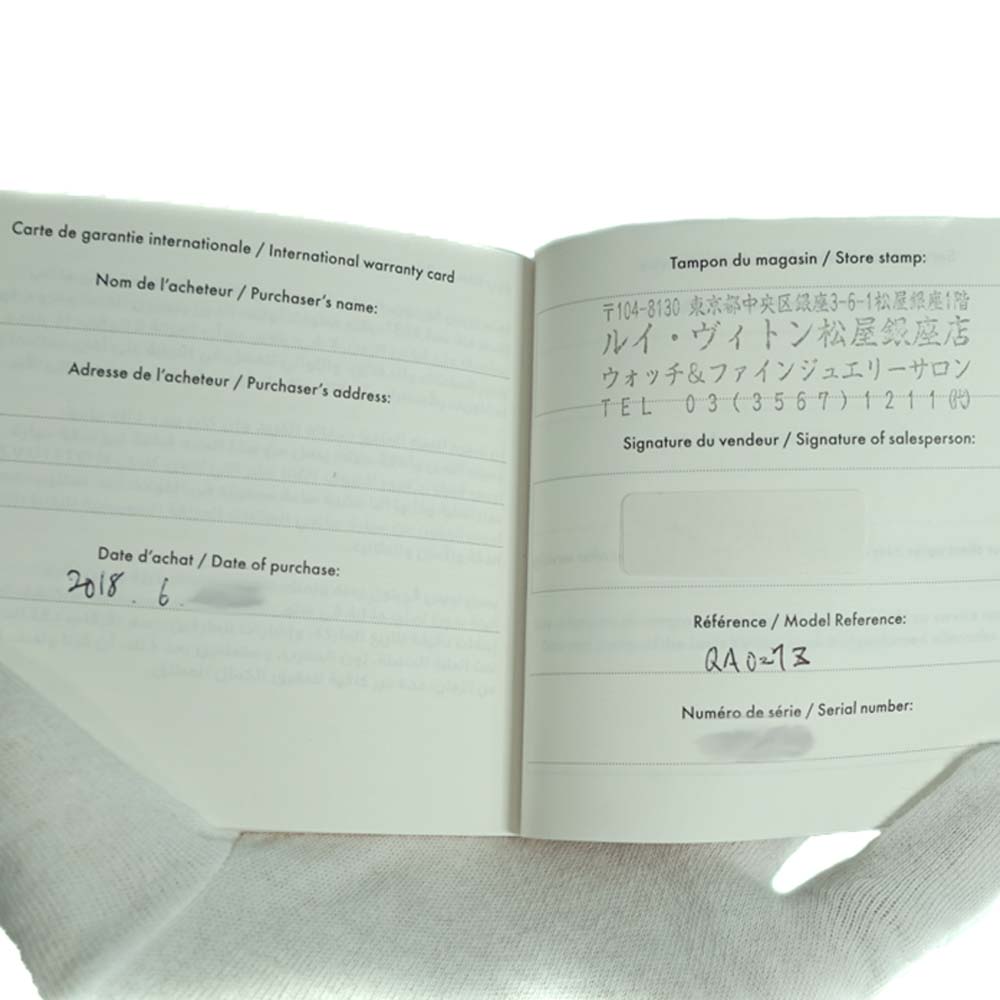 Carte de garantie internationale / International warranty card
Nom de l'acheteur / Purchaser's name:
Adresse de l'acheteur / Purchaser's address:
Date d'achat / Date of purchase:
2018. 6.
Tampon du magasin / Store stamp:
〒104-8130 東京都中央区銀座3-6-1松屋銀座1階
ルイ・ヴィトン松屋銀座店
ウォッチ&ファインジュエリーサロン
TEL 03(3567)1211㈹
Signature du vendeur / Signature of salesperson:
Référence / Model Reference:
QA027Z
Numéro de série / Serial number: